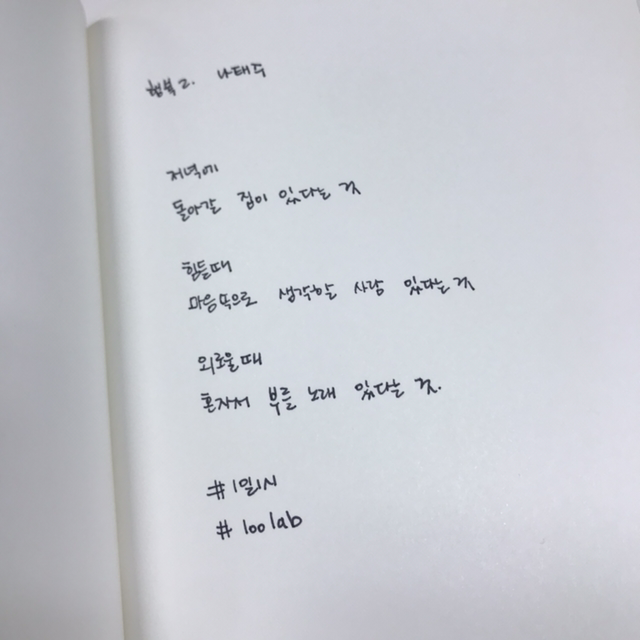 행복2. 나태주
저녁에
돌아갈 집이 있다는 것
힘들때
마음속으로 생각할 사람 있다는것
외로울때
혼자서 부를 노래 있다는 것.
#1일1시
#100lab